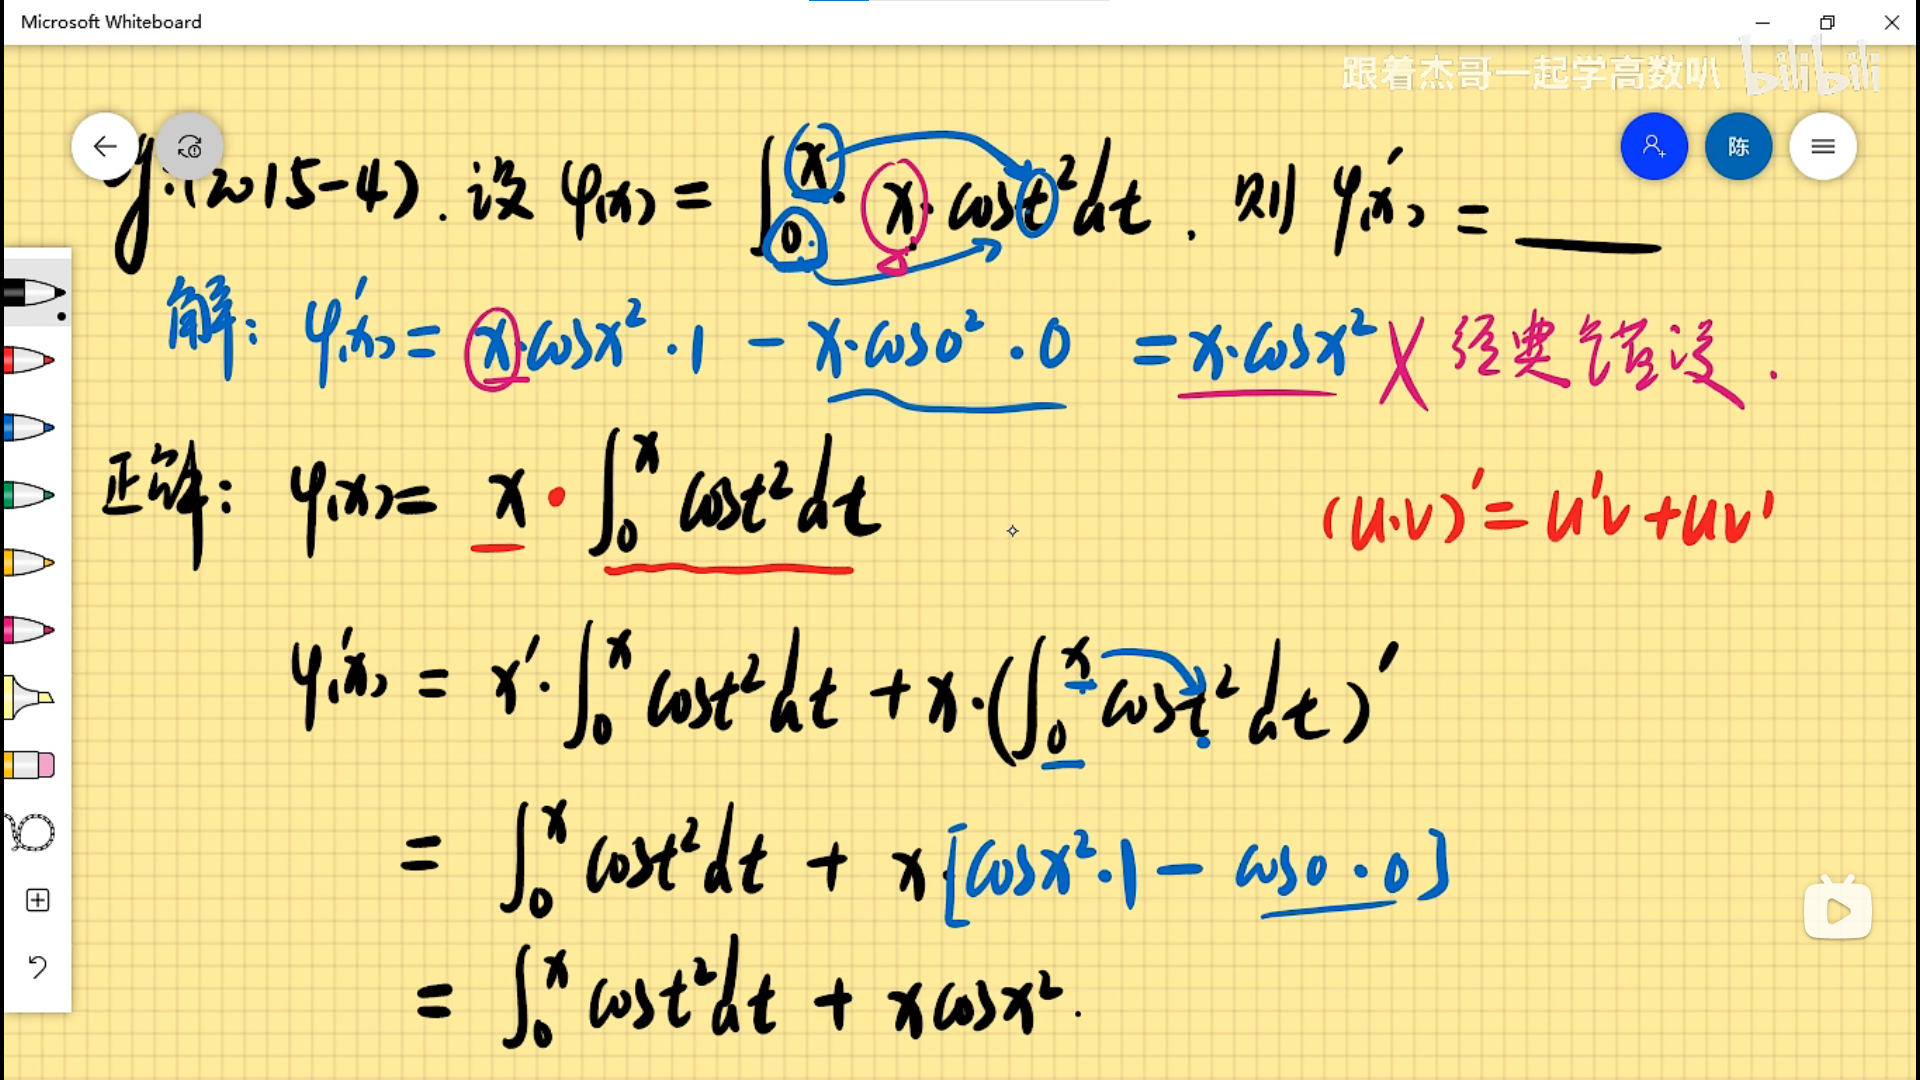 Microsoft Whiteboard
跟着杰哥一起学高数叭 bilibili
陈
(2015-4). 设 φ(x) = ∫₀ˣ x·cost²dt. 则 φ′(x) = ____
解: φ′(x) = x·cosx²·1 − x·cos0²·0 = x·cosx² X 经典错误.
正解: φ(x) = x·∫₀ˣ cost²dt (u·v)′ = u′v + uv′
φ′(x) = x′·∫₀ˣ cost²dt + x·(∫₀ˣ cost²dt)′
= ∫₀ˣ cost²dt + x·[cosx²·1 − cos0·0]
= ∫₀ˣ cost²dt + xcosx².